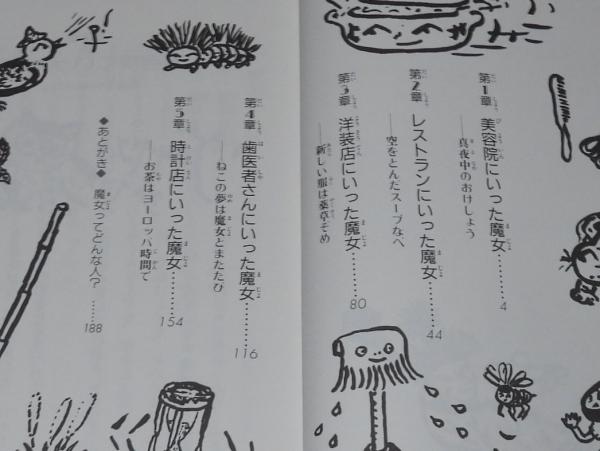 第1章 美容院にいった魔女………4
――真夜中のおけしょう
第2章 レストランにいった魔女………44
――空をとんだスープなべ
第3章 洋装店にいった魔女………80
――新しい服は薬草ぞめ
第4章 歯医者さんにいった魔女………116
――ねこの夢は魔女とまたたび
第5章 時計店にいった魔女………154
――お茶はヨーロッパ時間で
◆あとがき◆ 魔女ってどんな人？……188